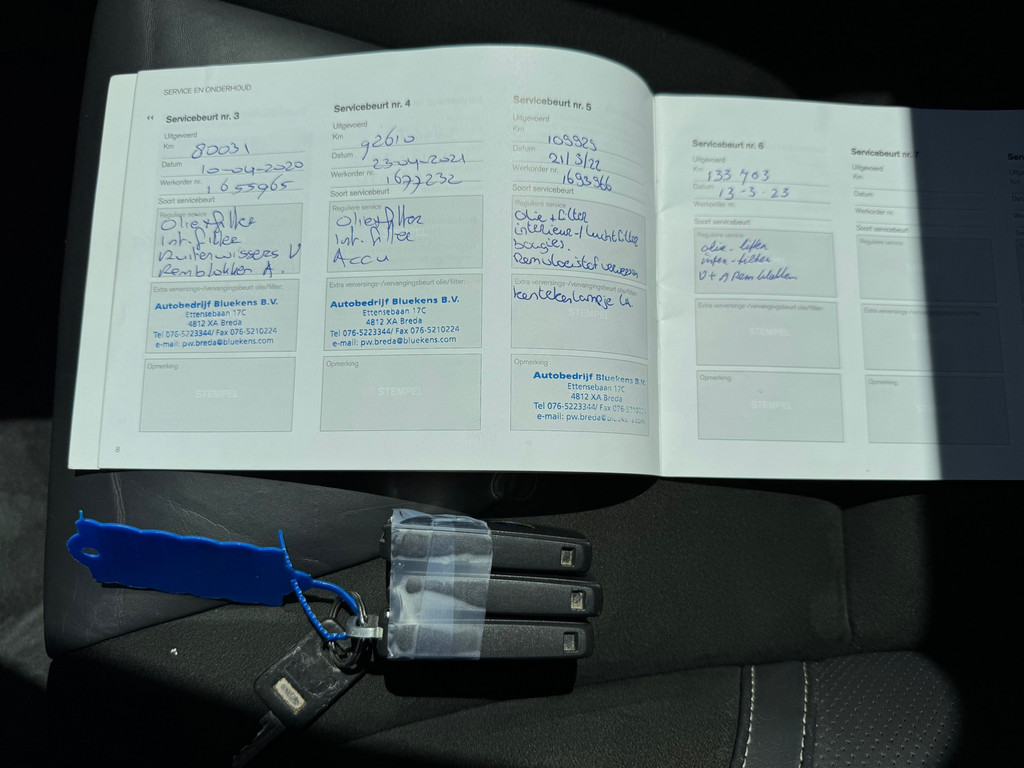 SERVICE EN ONDERHOUD
Servicebeurt nr. 3
Uitgevoerd
Km 80031
Datum 10-04-2020
Werkorder nr. 1655965
Soort servicebeurt
Reguliere service
Olie+filter
Int. filter
Ruitenwissers V
Remblokken A.
Extra verversings-/vervangingsbeurt olie/filter:
Autobedrijf Bluekens B.V.
Ettensebaan 17C
4812 XA Breda
Tel 076-5223344/ Fax 076-5210224
e-mail: pw.breda@bluekens.com
Opmerking
STEMPEL
8
Servicebeurt nr. 4
Uitgevoerd
Km 92610
Datum 23-04-2021
Werkorder nr. 1677232
Soort servicebeurt
Reguliere service
Olie+filter
Int. filter
Accu
Extra verversings-/vervangingsbeurt olie/filter:
Autobedrijf Bluekens B.V.
Ettensebaan 17C
4812 XA Breda
Tel 076-5223344/ Fax 076-5210224
e-mail: pw.breda@bluekens.com
Opmerking
STEMPEL
Servicebeurt nr. 5
Uitgevoerd
Km 109925
Datum 21/3/22
Werkorder nr. 1693966
Soort servicebeurt
Reguliere service
Olie + filter
interieur-/luchtfilter
bougies.
Remvloeistof verversen
Extra verversings-/vervangingsbeurt olie/filter:
kentekenlampje LA
STEMPEL
Opmerking
Autobedrijf Bluekens B.V.
Ettensebaan 17C
4812 XA Breda
Tel 076-5223344/ Fax 076-5210
e-mail: pw.breda@
Servicebeurt nr. 6
Uitgevoerd
Km 133 403
Datum 13-3-23
Werkorder nr.
Soort servicebeurt
Reguliere service
olie-filter
V+A Remblokken
Extra verversings-/vervangingsbeurt olie/filter:
STEMPEL
Opmerking
STEMPEL
Servicebeurt nr. 7
Uitgevoerd
Km
Datum
Werkorder nr.
Soort servicebeurt
Reguliere service
Extra verversings-/vervangingsbeurt olie/filter:
Opmerking